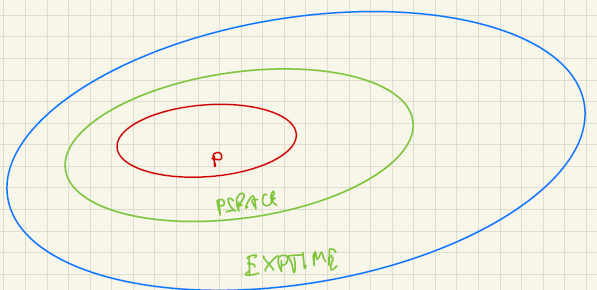 P
PSPACE
EXPTIME